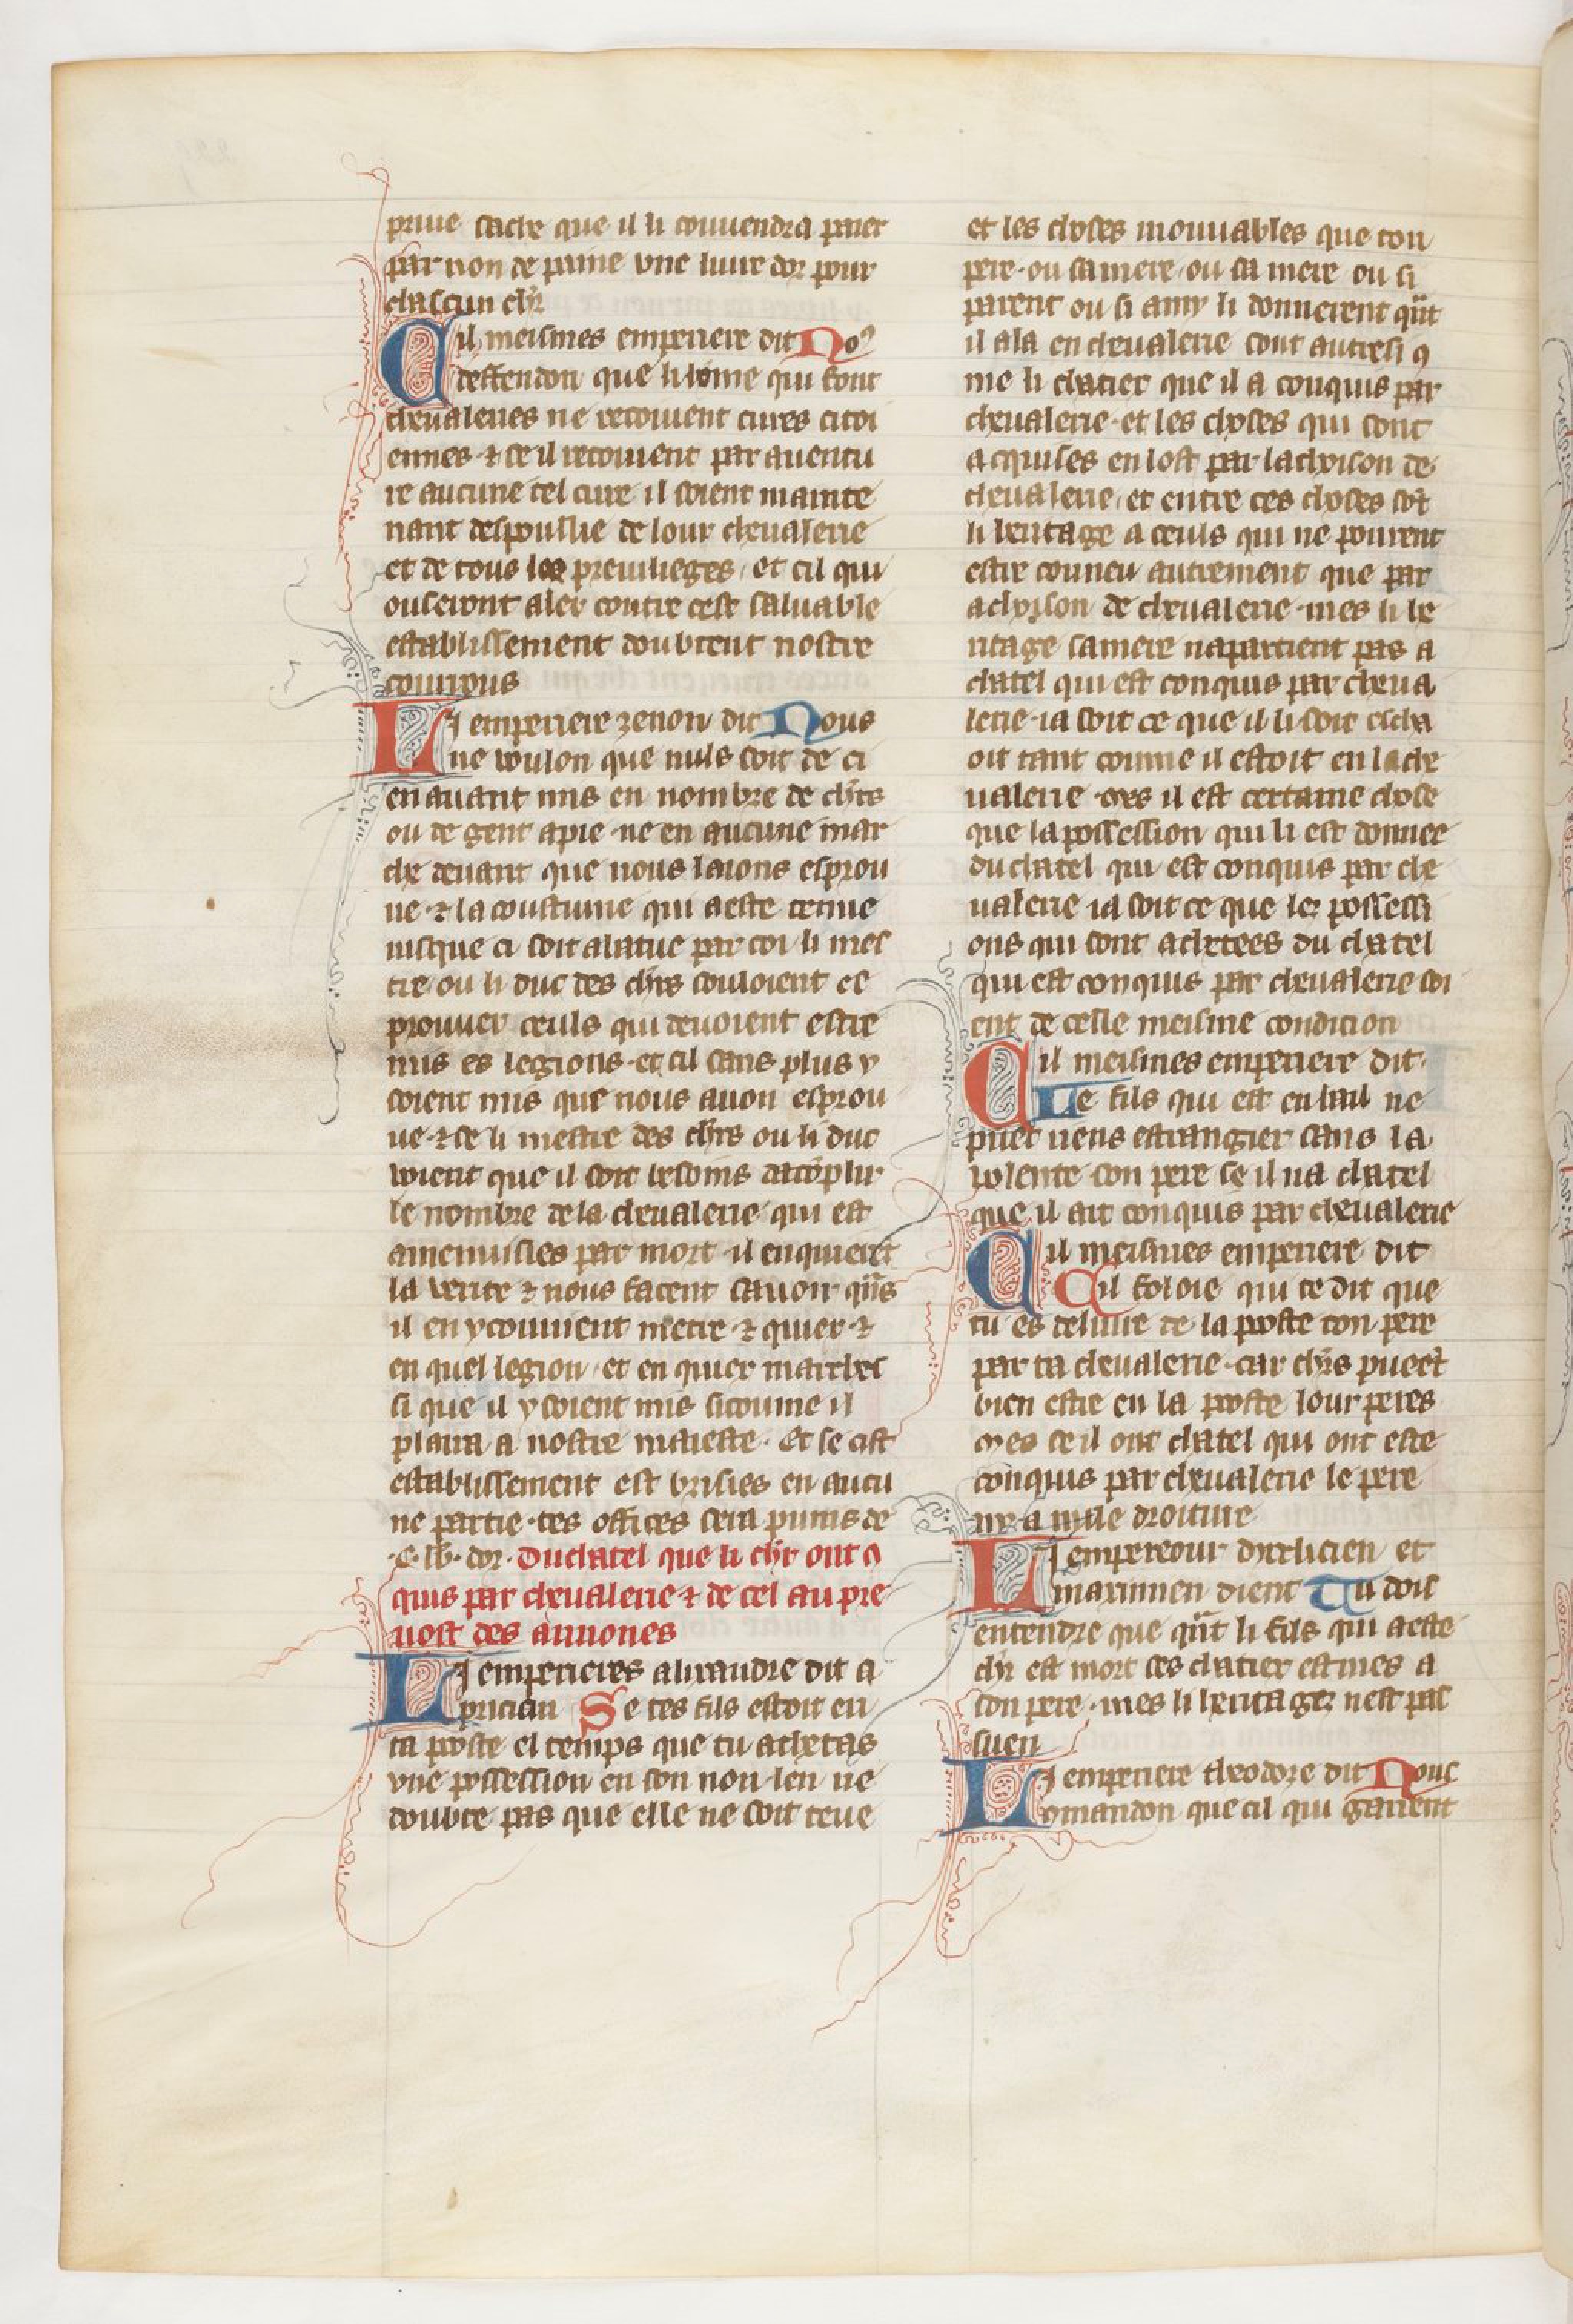 priue sache que il li conuendra paier
par non de paine vne liure dor pour
chascun chr̄
Cil meismes emperiere dit Noꝰ
deffendon que li home qui sont
cheualeries ne recoiuent cures citoi
ennes ⁊ se il recoiuent par auentu
re aucune tel cure il soient mainte
nant despoullie de lour cheualerie
et de tous les preuilieges et cil qui
ouseront aler contre cest saluable
establissement doubtent nostre
courrous
Li emperiere zenon dit Nous
ne voulon que nuls soit de ci
en auant mis en nombre de chr̄s
ou de gent apie ne en aucune mar
che deuant que nous laions esprou
ue ⁊ la coustume qui a este tenue
iusque ci soit abatue par coi li mes
tre ou li duc des chr̄s souloient es
prouuer ceuls qui deuoient estre
mis es legions et cil sans plus y
soient mis que nous auon esprou
ue ⁊ se li mestre des chr̄s ou li duc
voient que il soit besoins dacōplir
le nombre de la cheualerie qui est
amenuisies par mort il enquierēt
la verite ⁊ nous facent sauoir qn̄s
il en y conuient metre ⁊ quier ⁊
en quel legion et en quier marches
si que il y soient mis si comme il
plaira a nostre maieste. Et se cist
establissement est brisies en aucu
ne partie tes offices sera punis de
.C. lb. dor. Du chatel que li chr̄ ont ꝯ
quis par cheualerie ⁊ de cel au pre
uost des annones
Li emperieres alixandre dit a
prician Se tes fils estoit en
ta poste el temps que tu achetas
vne possession en son non len ne
doubte pas que elle ne soit teue
et les choses mouuables que son
pere ou sa mere ou sa mere ou si
parent ou si amy li donnerent qn̄t
il ala en cheualerie sont autresi ꝯ
me li chatier que il a conquis par
cheualerie et les choses qui sont
acquises en lost par lachoison de
cheualerie et entre ces choses sōt
li heritage a ceuls qui ne pourent
estre conneu autrement que par
achoison de cheualerie mes li he
ritage sa mere napartient pas a
chatel qui est conquis par cheua
lerie ia soit ce que il li soit escha
oit tant comme il estoit en la che
ualerie mes il est certaine chose
que la possession qui li est donnee
du chatel qui est conquis par che
ualerie ia soit ce que les possessi
ons qui sont achetees du chatel
qui est conquis par cheualerie soi
ent de celle meisme condicion
Cil meismes emperiere dit
Le fils qui est en bail ne
puet riens estrangier sans la
volente son pere se il na chatel
que il ait conquis par cheualerie
Cil meismes emperiere dit
Cil foloie qui te dit que
tu es deliure de la poste ton pere
par ta cheualerie car chr̄s pueēt
bien estre en la poste lour peres
mes se il ont chatel qui ont este
conquis par cheualerie le pere
ny a nulle droiture
Li empereour dyoclicien et
maximien dient Tu dois
entendre que qn̄t li fils qui a este
chr̄ est mort ses chatier est mes a
son pere. mes li heritagez nest pas
suen
Li emperiere theodore dit Nous
comandon que cil qui garient